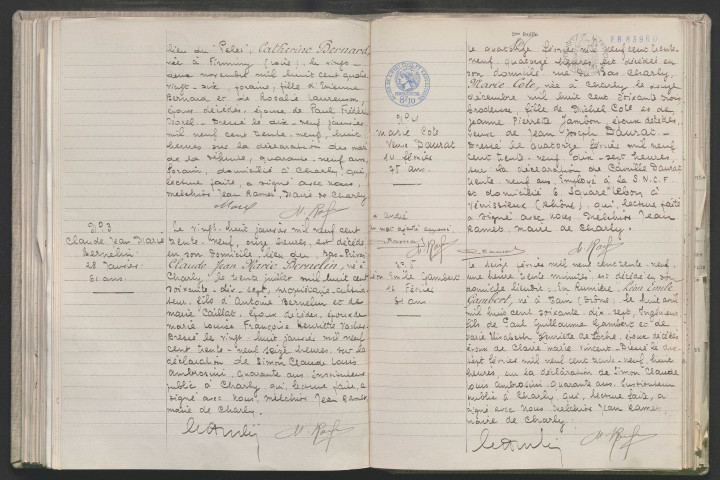 lieu du "Pelet", Catherine Bernard
née à Firminy (Loire), le vingt-
deux novembre mil huit cent quatre
vingt-dix, foraine, fille d'Etienne
Bernard et de Rosalie
épouse de Paul Frédéric
Morel - Dressé le dix-neuf janvier
mil neuf cent trente-neuf, huit
heures sur la déclaration des mari
de la défunte, quarante-neuf ans
forain, domicilié à Charly, qui,
lecture faite, a signé avec nous,
Melchior Jean Ramet, Maire de Charly
Morel
N° 3
Claude Jean Marie
Bernelin
28 Janvier
61 ans
Le vingt-huit janvier mil neuf cent
trente-neuf, onze heures, est décédé
en son domicile lieu du
Claude Jean Marie Bernelin, né à
Charly, le trente juillet mil huit cent
soixante-dix-sept, propriétaire-cultiva
teur, fils d'Antoine Bernelin et de
Marie Caillat, époux décédés, époux de
Marie Louise Françoise Henriette
Dressé le vingt-huit janvier mil neuf
cent trente-neuf seize heures, sur la
déclaration de Simon Claude Louis
Ambrosini, quarante ans, Instituteur
public à Charly qui, lecture faite, a
signé avec nous, Melchior Jean Ramet
maire de Charly.
N° 4
Marie Cote
Veuve Daurat
14 février
75 ans
Le quatorze février mil neuf cent trente-
neuf, quatorze heures, est décédée en
son domicile rue du Bas Charly,
Marie Cote, née à Charly le
décembre mil huit cent soixante trois
brodeuse, fille de Michel Cote et de
Jeanne Pierrette Jambon, époux décédés,
veuve de Jean Joseph Daurat -
Dressé le quatorze février mil neuf
cent trente-neuf, dix-sept heures,
sur la déclaration de Camille Daurat
trente-neuf ans, Employé à la S.N.C.F
et domicilié 6, Square
Vénissieux (Rhône), qui, lecture faite
a signé avec nous Melchior Jean
Ramet, maire de Charly.
N° 5
Léon Emile Gambert
16 Février
61 ans
Le seize février mil neuf cent trente-neuf
une heure trente minutes, est décédé en son
domicile lieudit: la Lumière, Léon Emile
Gambert, né à Tain (Drôme), le huit avril
mil huit cent soixante-dix-sept, Ingénieur,
fils de Paul Guillaume Gambert et de
Marie Elisabeth Henriette de époux décédés
époux de Claire Marie Vincent - Dressé le dix
sept février mil neuf cent trente-neuf, huit
heures, sur la déclaration de Simon Claude
Louis Ambrosini quarante ans, Instituteur
public à Charly qui, lecture faite, a
signé avec nous Melchior Jean Ramet
maire de Charly.